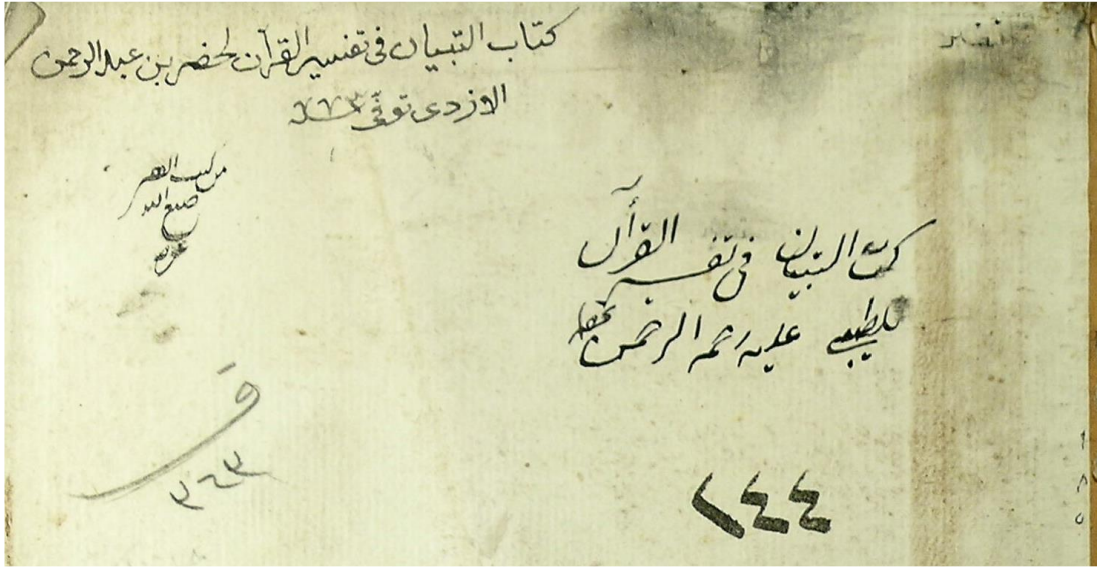 كتاب التبيان في تفسير القرآن لخضر بن عبد الرحمن
الازدى توفى ٧٧٣
تفسير
من كتب الفقير
صنع الله
كتاب التبيان في تفسير القرآن
للطيبي عليه رحمة الرحمن
ق
٣٦٣
١٤٤